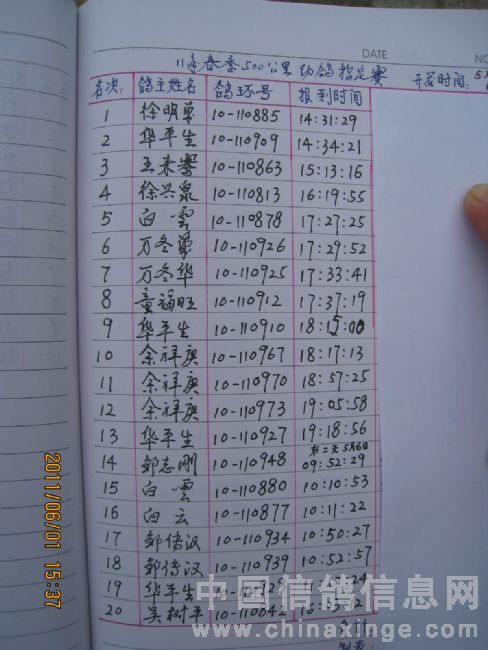 DATE
11年春季500公里幼鸽指定赛 开笼时间: 5月
名次: 鸽主姓名 鸽环号 报到时间
1 徐明 10-110885 14:31:29
2 华平生 10-110909 14:34:21
3 王来 10-110863 15:13:16
4 徐兴泉 10-110813 16:19:55
5 白雲 10-110878 17:27:25
6 万冬 10-110926 17:29:52
7 万冬华 10-110925 17:33:41
8 童福旺 10-110912 17:37:19
9 华平生 10-110910 18:15:00
10 余祥庚 10-110967 18:17:13
11 余祥庚 10-110970 18:57:25
12 余祥庚 10-110973 19:05:58
13 华平生 10-110927 19:18:56
第二天5月6日
14 邹志刚 10-110948 09:52:29
15 白雲 10-110880 10:10:53
16 白云 10-110877 10:11:22
17 邹传汉 10-110934 10:50:27
18 邹传汉 10-110939 10:52:57
19 华平生
20 吴树平 10-110842
2011/06/01 15:37
中国信鸽信息网
www.chinaxinge.com